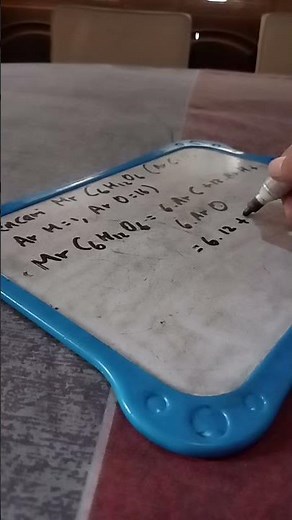 Mr C6H12O6 (Ar C
Ar H=1, Ar O=16)
Mr C6H12O6 = 6.Ar C
6.Ar O
= 6.12 +